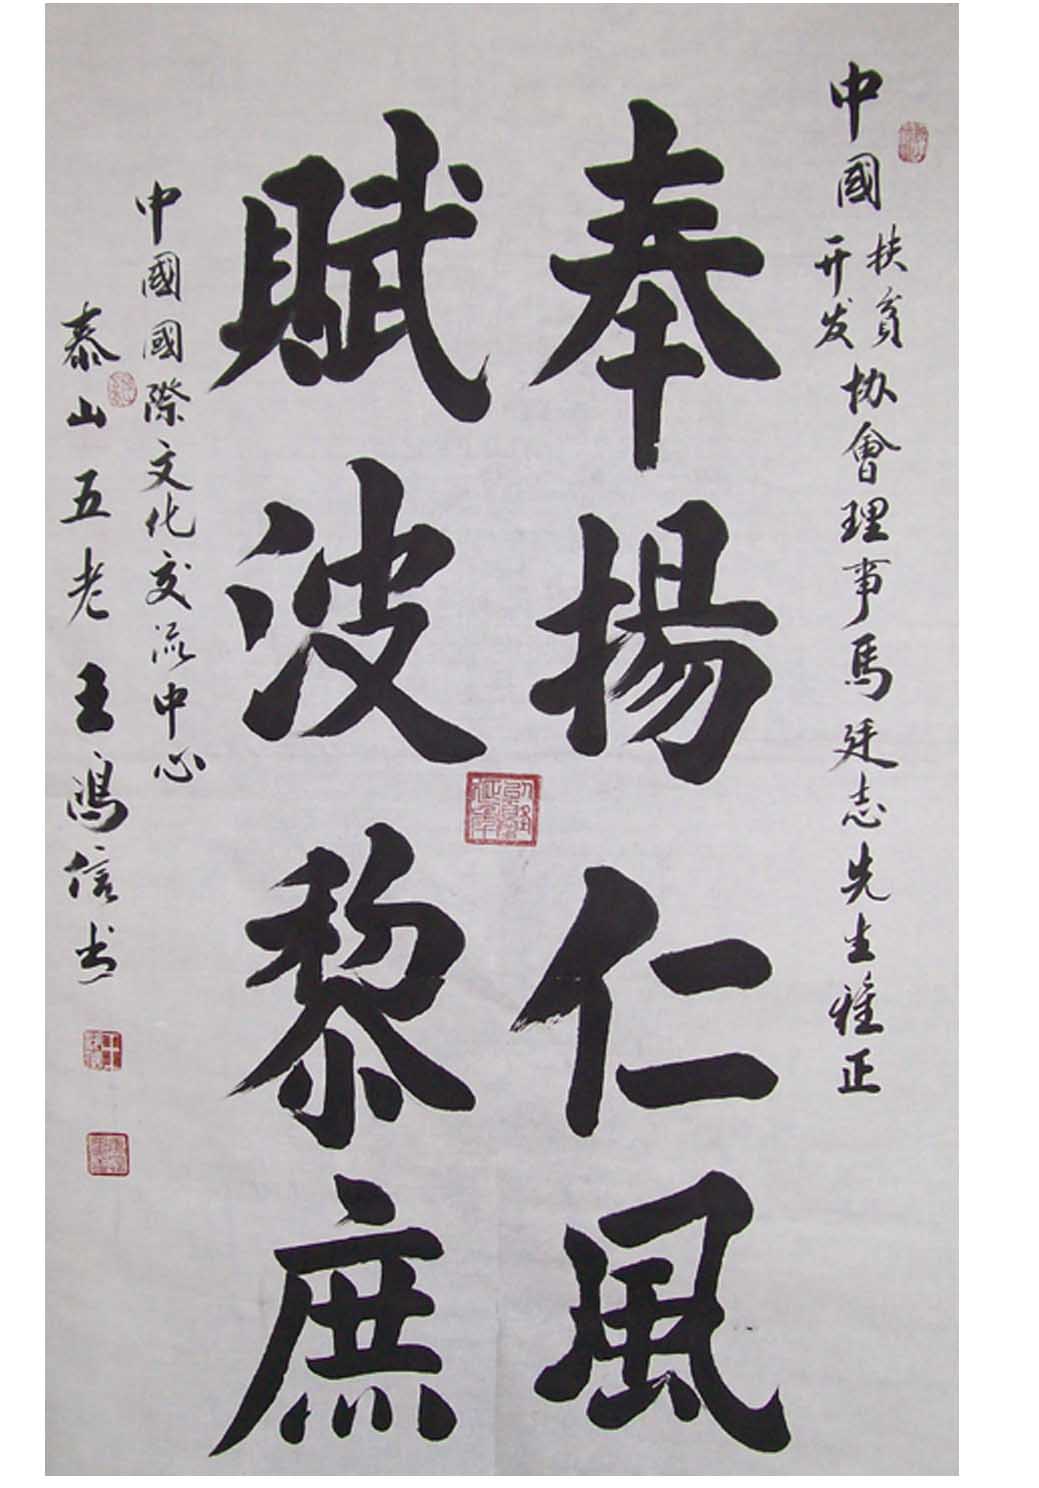 中國扶貧开发协會理事馬廷志先生雅正
奉揚仁風
賦波黎庶
中國國際文化交流中心
泰山五老王鴻信书